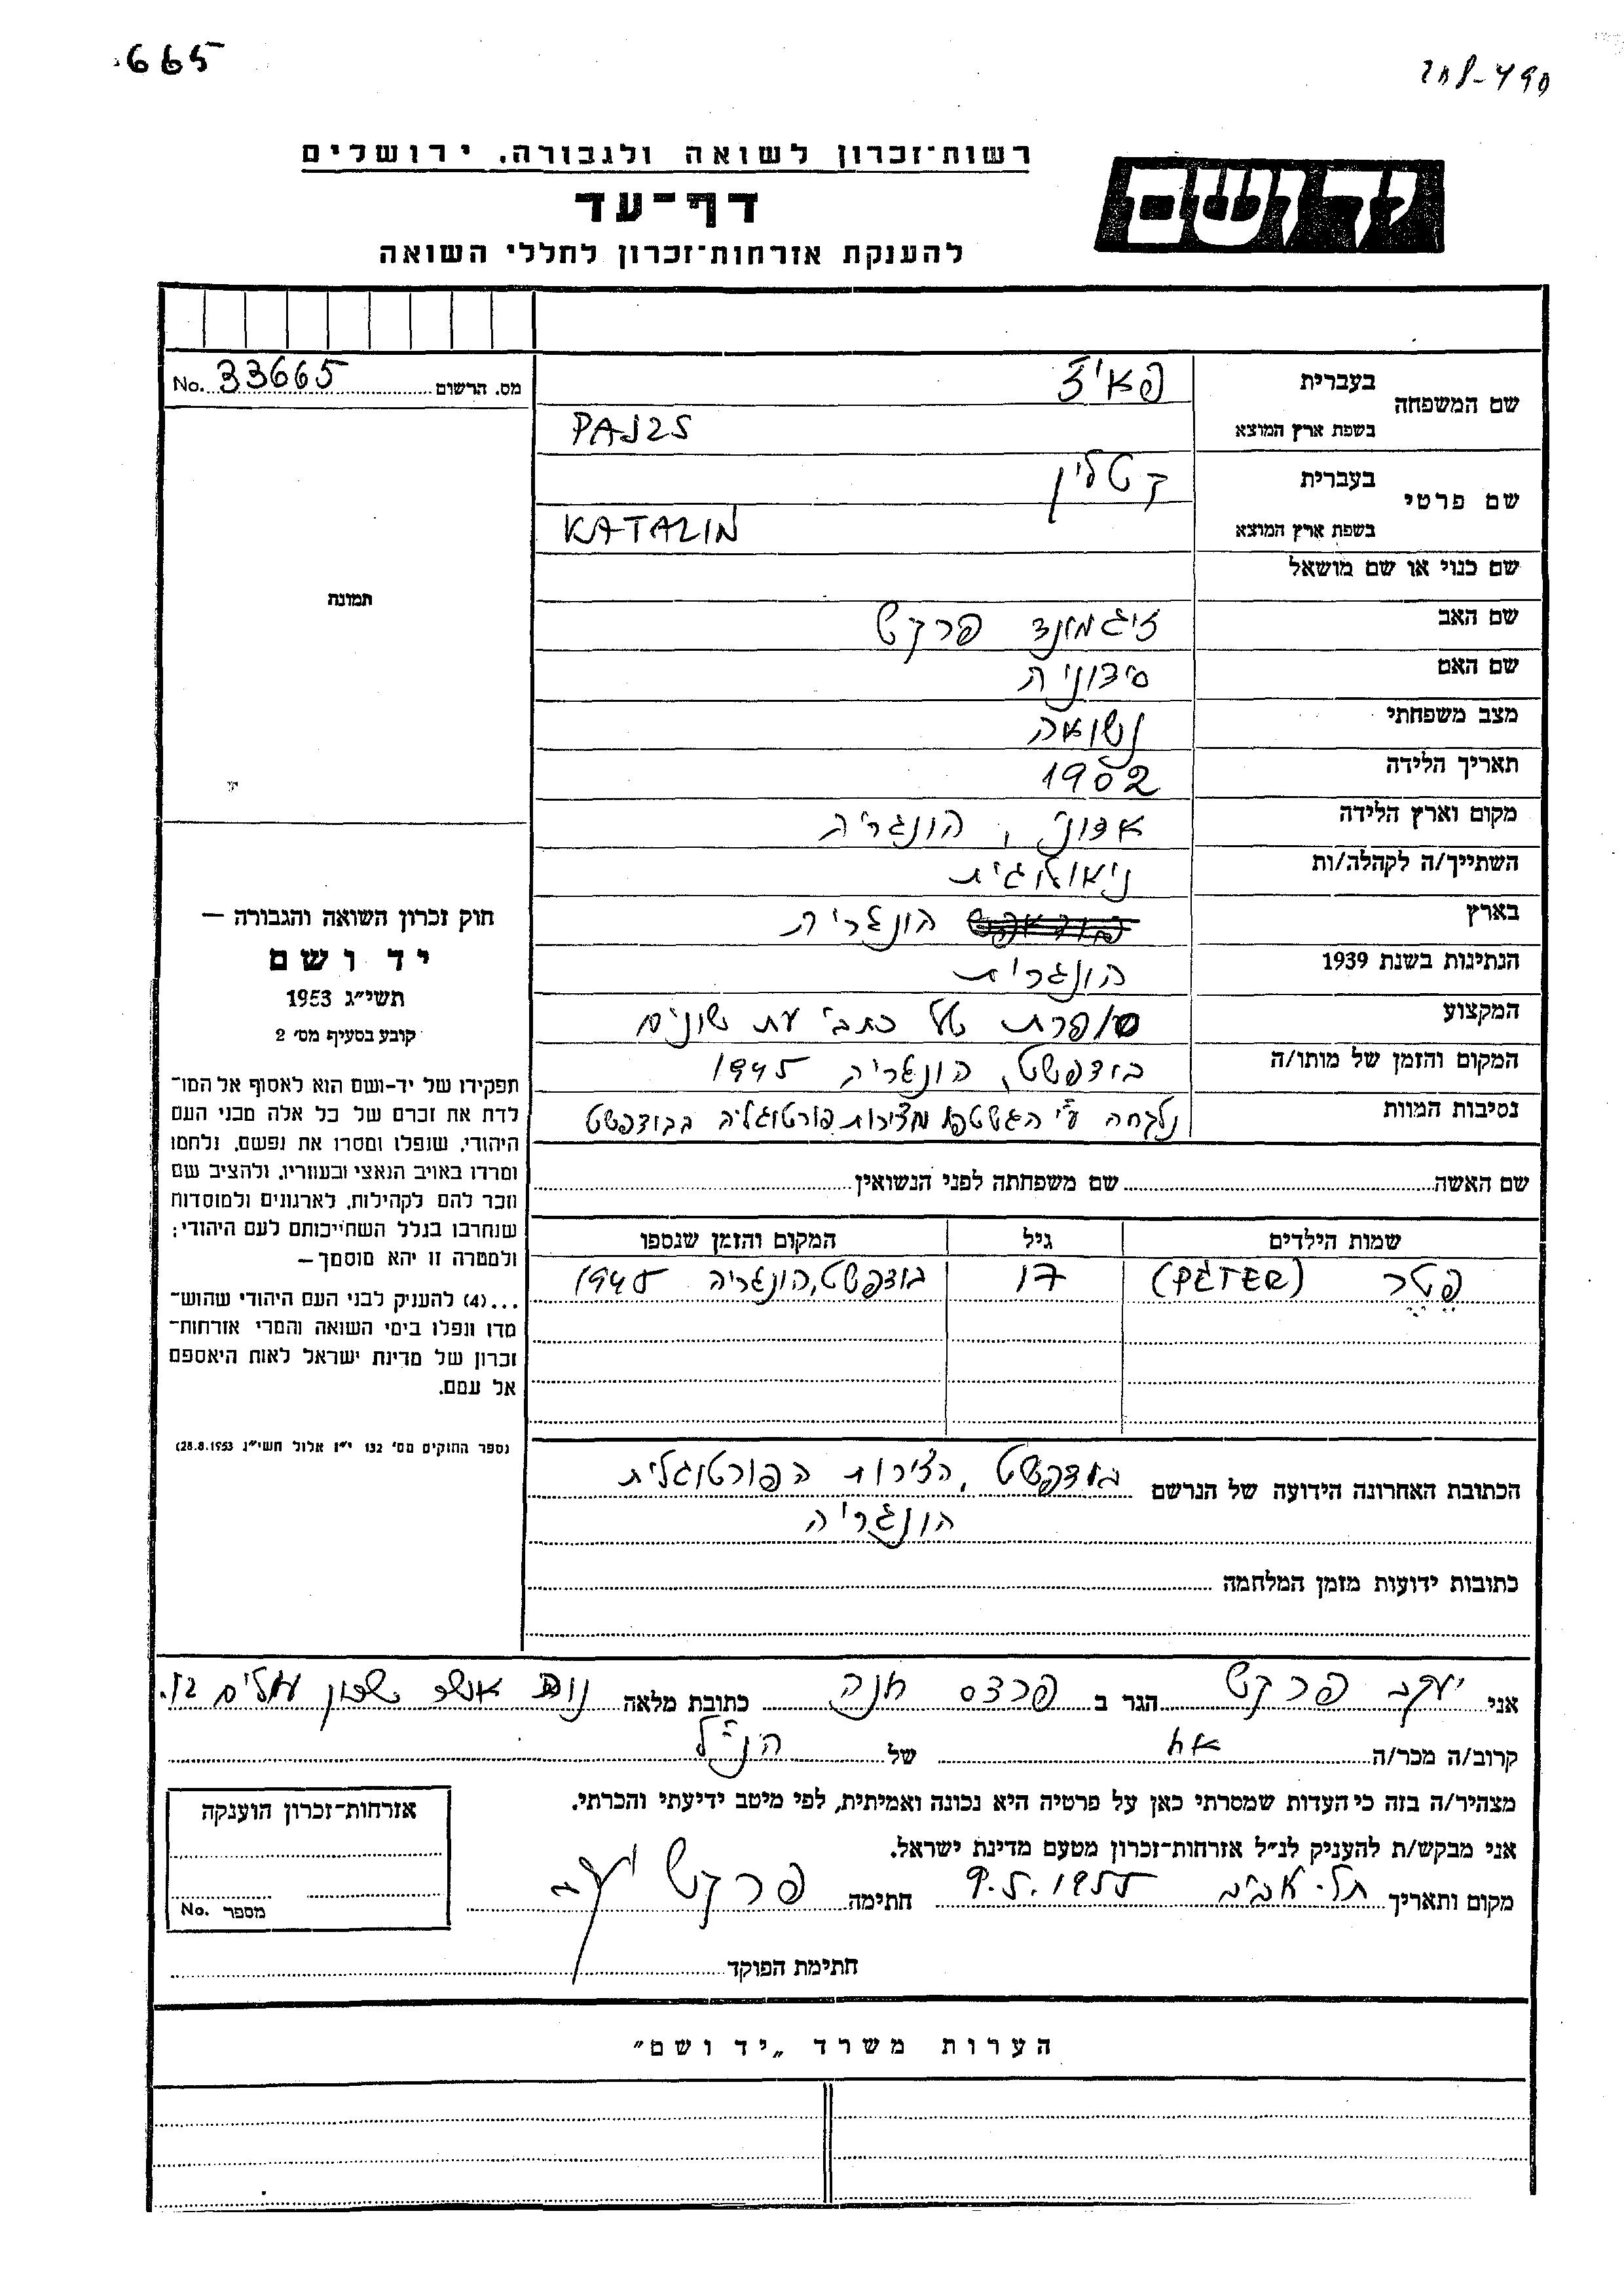 665
208-490
רשות־זכרון לשואה ולגבורה. ירושלים
דף־עד
להענקת אזרחות־זכרון לחללי השואה
ידושם
מס. הרשום No. 33665
שם המשפחה
בעברית פאיז'
בשפת ארץ המוצא PAJZS
שם פרטי
בעברית קטלין
בשפת ארץ המוצא KATALIN
שם כנוי או שם מושאל
תמונה
שם האב זיגמונד פרקש
שם האם סידוניה
מצב משפחתי נשואה
תאריך הלידה 1902
מקום וארץ הלידה אדוני, הונגריה
השתייך/ה לקהלה/ות ניאולוגית
בארץ הונגרית
הנתינות בשנת 1939 הונגרית
המקצוע סופרת של כתבי עת שונים
המקום והזמן של מותו/ה בודפשט, הונגריה 1945
נסיבות המוות נלקחה ע"י הגשטפו מצירות פורטוגליה בבודפשט
שם האשה שם משפחתה לפני הנשואין
שמות הילדים גיל המקום והזמן שנספו
פטר (PÉTER) 17 בודפשט, הונגריה 1945
הכתובת האחרונה הידועה של הנרשם בודפשט, הצירות הפורטוגלית
הונגריה
כתובות ידועות מזמן המלחמה
חוק זכרון השואה והגבורה —
יד ושם
תשי״ג 1953
קובע בסעיף מס׳ 2
תפקידו של יד-ושם הוא לאסוף אל המו־
לדת את זכרם של כל אלה מבני העם
היהודי, שנפלו ומסרו את נפשם, נלחמו
ומרדו באויב הנאצי ובעוזריו, ולהציב שם
וזכר להם לקהילות, לארגונים ולמוסדות
שנחרבו בגלל השתייכותם לעם היהודי;
ולמטרה זו יהא מוסמך —
...(4) להעניק לבני העם היהודי שהוש־
מדו ונפלו בימי השואה והמרי אזרחות־
זכרון של מדינת ישראל לאות היאספם
אל עמם.
(ספר החוקים מס׳ 132 י״ז אלול תשי״ג 28.8.1953)
אני יעקב פרקש הגר ב פרדס חנה כתובת מלאה נוה אשר שכון עולים 12.
קרוב/ה מכר/ה אח של הנ"ל
מצהיר/ה בזה כי העדות שמסרתי כאן על פרטיה היא נכונה ואמיתית, לפי מיטב ידיעתי והכרתי.
אני מבקש/ת להעניק לנ״ל אזרחות־זכרון מטעם מדינת ישראל.
מקום ותאריך תל-אביב 9.5.1955 חתימה פרקש יעקב
אזרחות־זכרון הוענקה
מספר No.
חתימת הפוקד
הערות משרד „יד ושם"